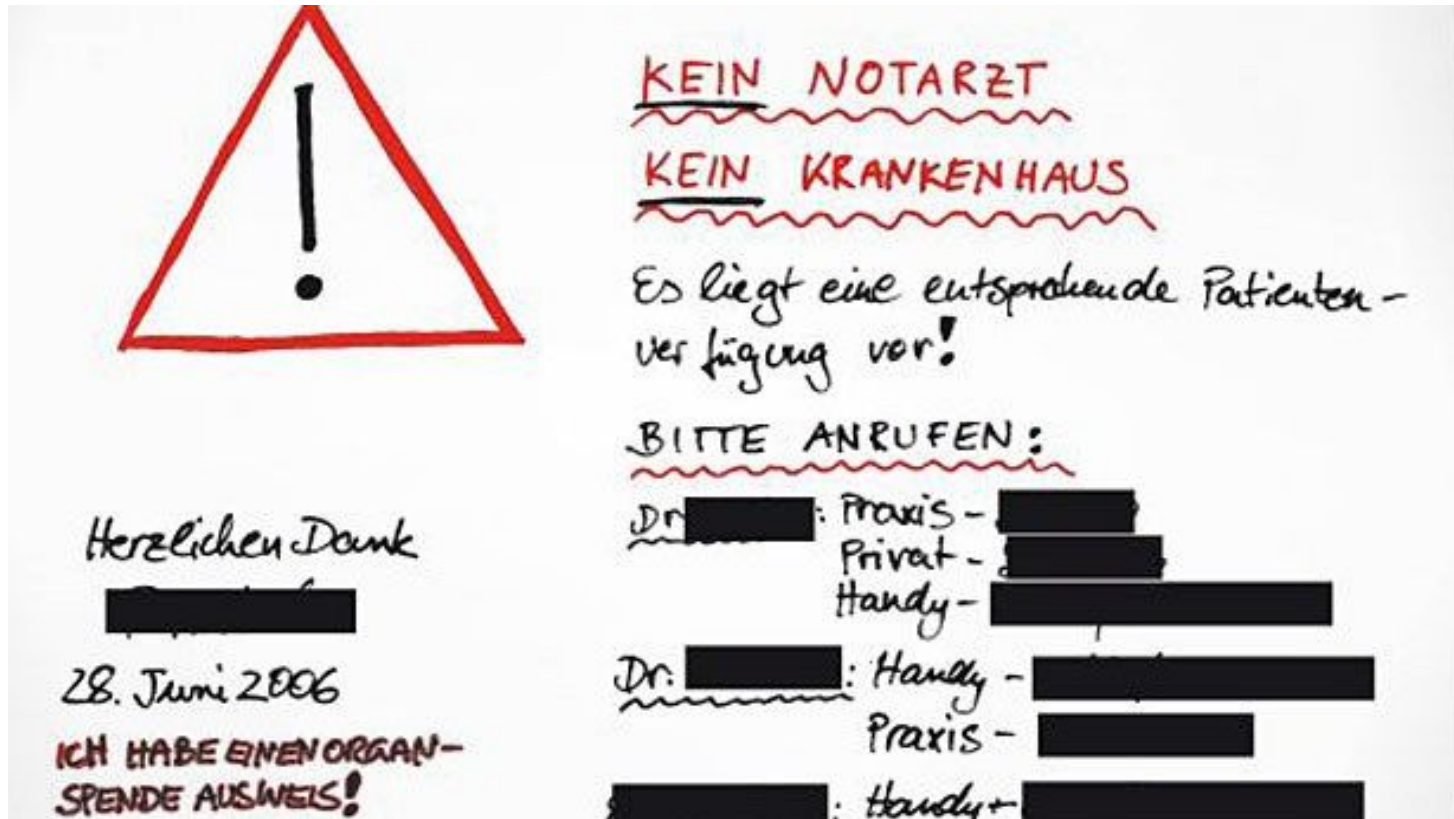 !
KEIN NOTARZT
KEIN KRANKENHAUS
Es liegt eine entsprechende Patienten-
verfügung vor!
BITTE ANRUFEN:
Dr : Praxis -
Privat -
Handy -
Dr. : Handy -
Praxis -
: Handy -
Herzlichen Dank
28. Juni 2006
ICH HABE EINEN ORGAN-
SPENDE AUSWEIS!